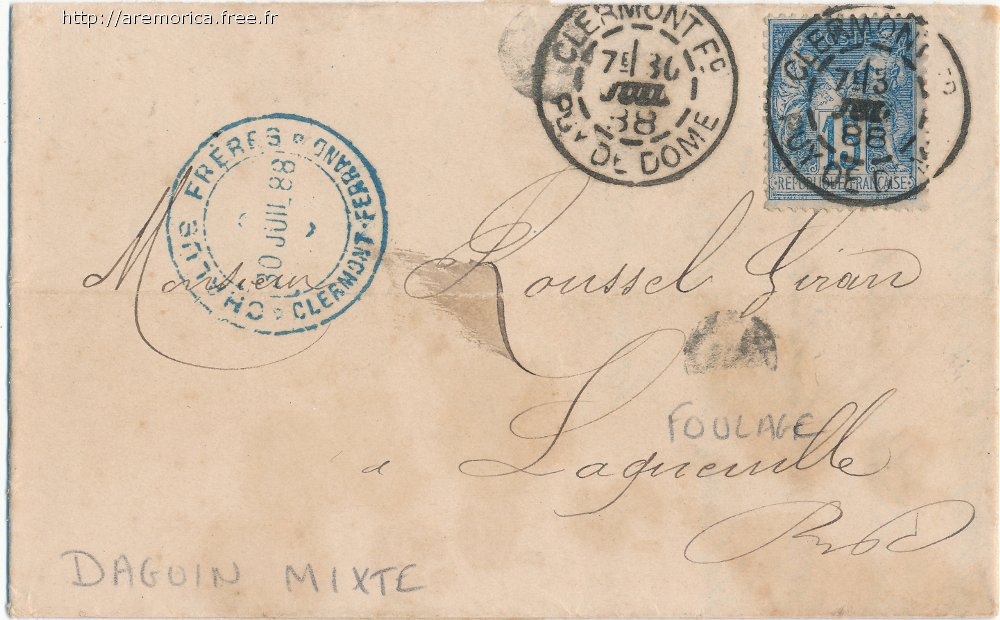 http://aremorica.free.fr
CLERMONT Fd
7E/30
JUIL
88
PUY-DE-DOME
CLERMONT
7E/3
JUIL
88
PUY-DE-DOME
15
REPUBLIQUE FRANCAISE
CHALUS FRÈRES
CLERMONT-FERRAND
30 JUIL 88
Monsieur Roussel Giran
FOULAGE
a Laqueuille
DAGUIN MIXTE